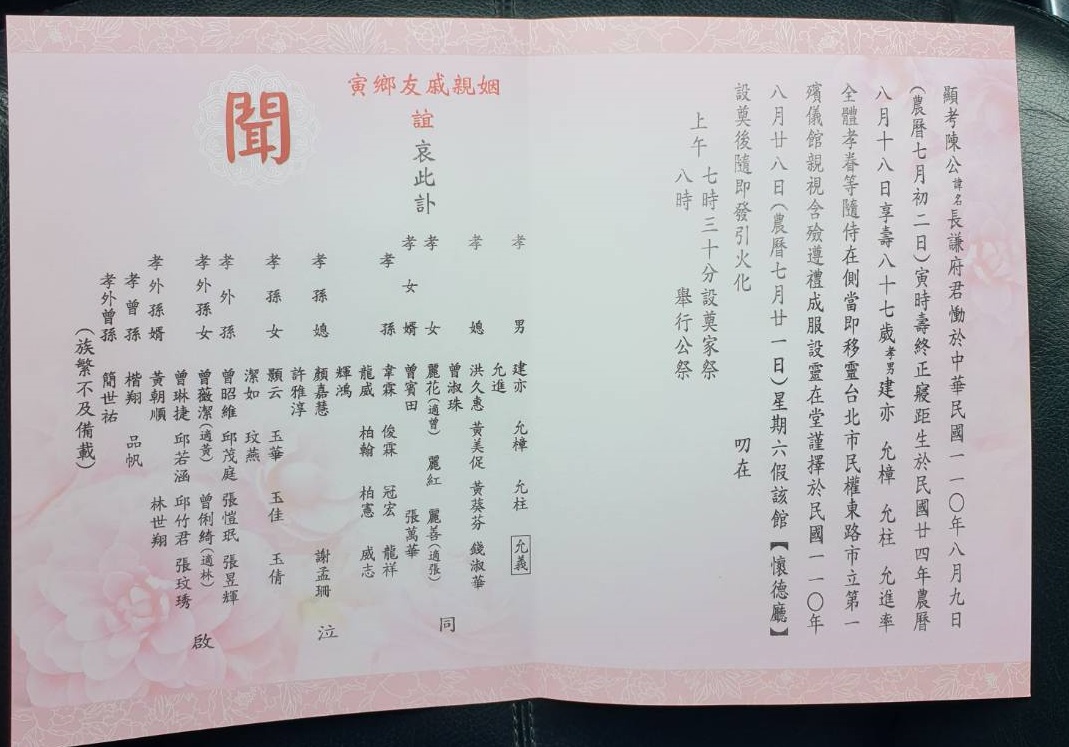 顯考陳公諱名長謙府君慟於中華民國一一〇年八月九日
(農曆七月初二日)寅時壽終正寢距生於民國廿四年農曆
八月十八日享壽八十七歲孝男建亦 允樟 允柱 允進率
全體孝眷等隨侍在側當即移靈台北市民權東路市立第一
殯儀館親視含殮遵禮成服設靈在堂謹擇於民國一一〇年
八月廿八日(農曆七月廿一日)星期六假該館【懷德廳】
設奠後隨即發引火化 叨在
上午 七時三十分設奠家祭
八時 舉行公祭
姻親戚友鄉寅
誼哀此訃
聞
孝男 建亦 允樟 允柱 允義
允進
孝媳 洪久惠 黃美促 黃葵芬 錢淑華
曾淑珠
孝女 麗花(適曾) 麗紅 麗善(適張)
孝女婿 曾賓田 張萬華
孝孫 韋霖 俊霖 冠宏 龍祥
龍威 柏翰 柏憲 威志
輝鴻
孝孫媳 顏嘉慧 謝孟珊
許雅淳
孝孫女 顥云 玉華 玉佳 玉倩
潔如 玟燕
孝外孫 曾昭維 邱茂庭 張愷珉 張昱輝
孝外孫女 曾薇潔(適黃) 曾俐綺(適林)
曾琳捷 邱若涵 邱竹君 張玟琇
孝外孫婿 黃朝順 林世翔
孝曾孫 楷翔 品帆
孝外曾孫 簡世祐
(族繁不及備載)
同
泣
啟